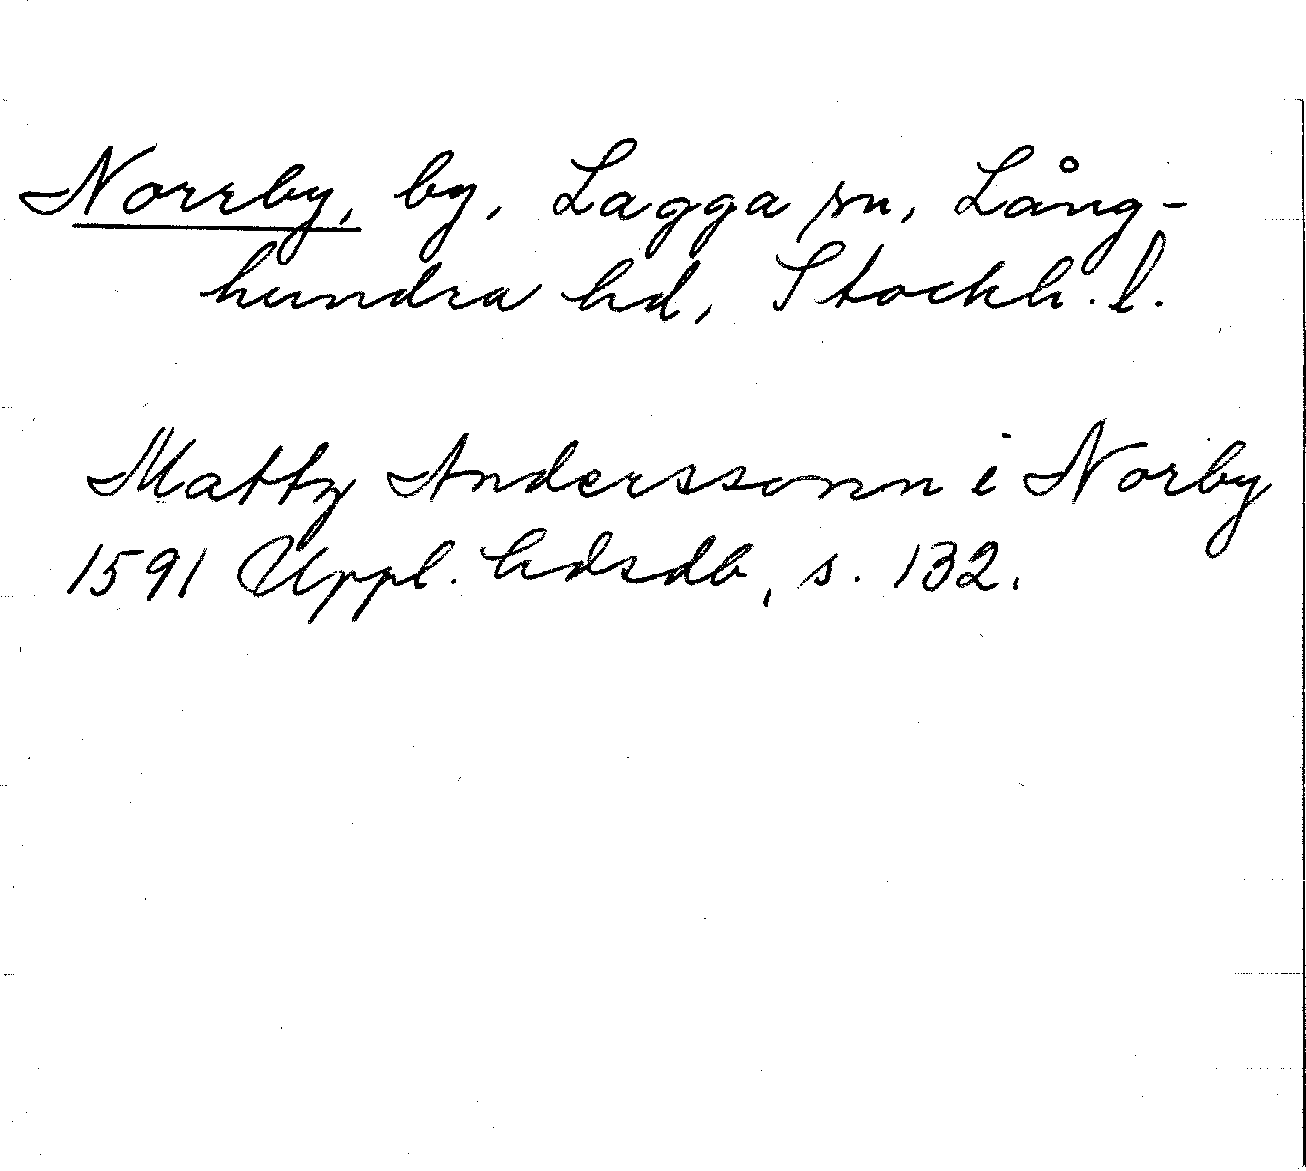 Norrby, by, Lagga sn, Lång-
hundra hd, Stockh. l.
Mattz Anderssonn i Norby
1591 Uppl. hdsdb, s. 132.